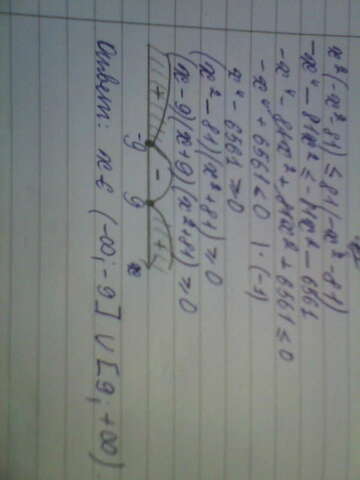 x²(-x²-81) ≤ 81(-x²-81)
-x⁴-81x² ≤ -81x²-6561
-x⁴-81x²+81x²+6561 ≤ 0
-x⁴+6561 ≤ 0 | ·(-1)
x⁴-6561 ≥ 0
(x²-81)(x²+81) = 0
(x-9)(x+9)(x²+81) = 0
+ - +
-9 9 x
Ответ: x ∈ (-∞; -9] ∪ [9; +∞)